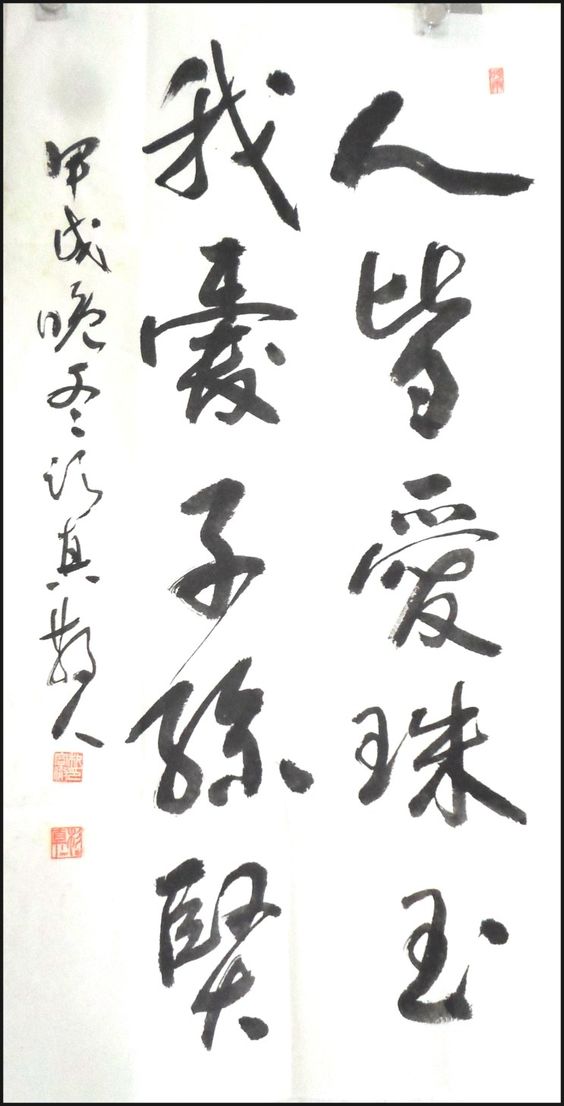 人皆愛珠玉
我愛子孫賢
甲戌晚冬真散人